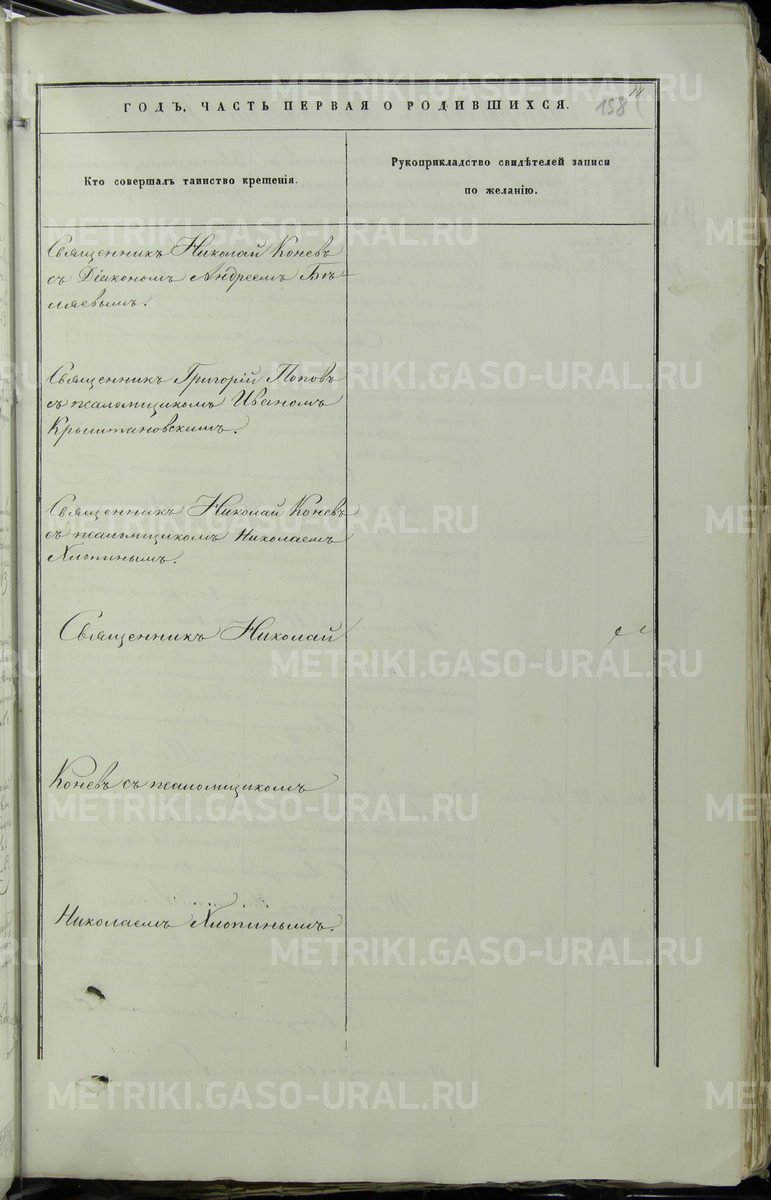 ГОДЪ, ЧАСТЬ ПЕРВАЯ О РОДИВШИХСЯ.
158
Кто совершалъ таинство крещенія.
Рукоприкладство свидѣтелей записи
по желанію.
Священникъ Николай Коневъ
съ Діакономъ Андреемъ Бѣ-
ляевымъ.
Священникъ Григорій Поповъ
съ псаломщикомъ Иваномъ
Крыштановскимъ.
Священникъ Николай Коневъ
съ псаломщикомъ Николаемъ
Хлопинымъ.
Священникъ Николай
Коневъ съ псаломщикомъ
Николаемъ Хлопинымъ.
METRIKI.GASO-URAL.RU